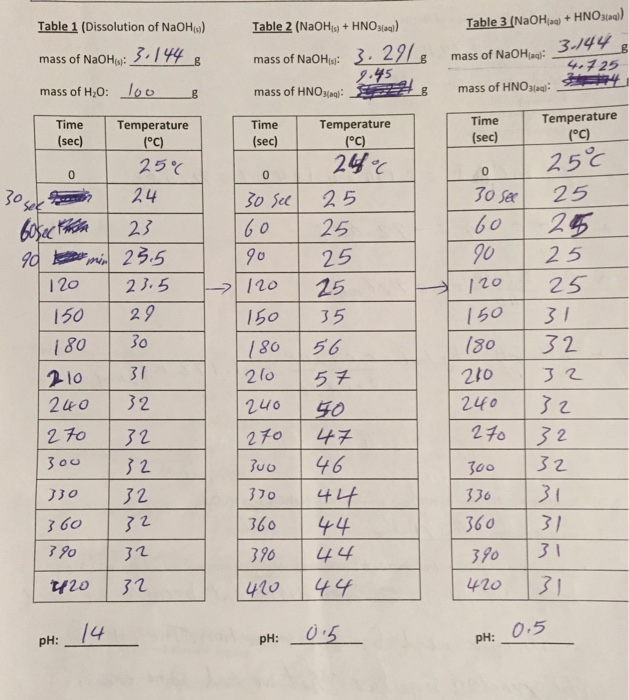 Table 1 (Dissolution of NaOH(s))
mass of NaOH(s): 3.144 g
mass of H₂O: 100 g
Time (sec) Temperature (°C)
0 25°C
30 sec 24
60sec 23
90 min 23.5
120 23.5
150 29
180 30
210 31
240 32
270 32
300 32
330 32
360 32
390 32
420 32
pH: 14
Table 2 (NaOH(s) + HNO3(aq))
mass of NaOH(s): 3.291 g
mass of HNO3(aq): 9.45 g
Time (sec) Temperature (°C)
0 24°C
30 sec 25
60 25
90 25
→ 120 25
150 35
180 56
210 57
240 50
270 47
300 46
330 44
360 44
390 44
420 44
pH: 0.5
Table 3 (NaOH(aq) + HNO3(aq))
mass of NaOH(aq): 3.144 g
mass of HNO3(aq): 4.725 g
Time (sec) Temperature (°C)
0 25°C
30 sec 25
60 25
90 25
→ 120 25
150 31
180 32
210 32
240 32
270 32
300 32
330 31
360 31
390 31
420 31
pH: 0.5